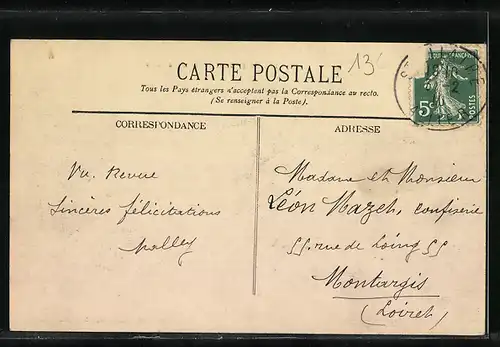 13
CARTE POSTALE
Tous les Pays étrangers n'acceptent pas la Correspondance au recto.
(Se renseigner à la Poste).
CORRESPONDANCE
ADRESSE
Sincères félicitations
Madame et Monsieur
Léon Mazet, confiserie
55. rue de Loing 55
Montargis
(Loiret)
5c
POSTES